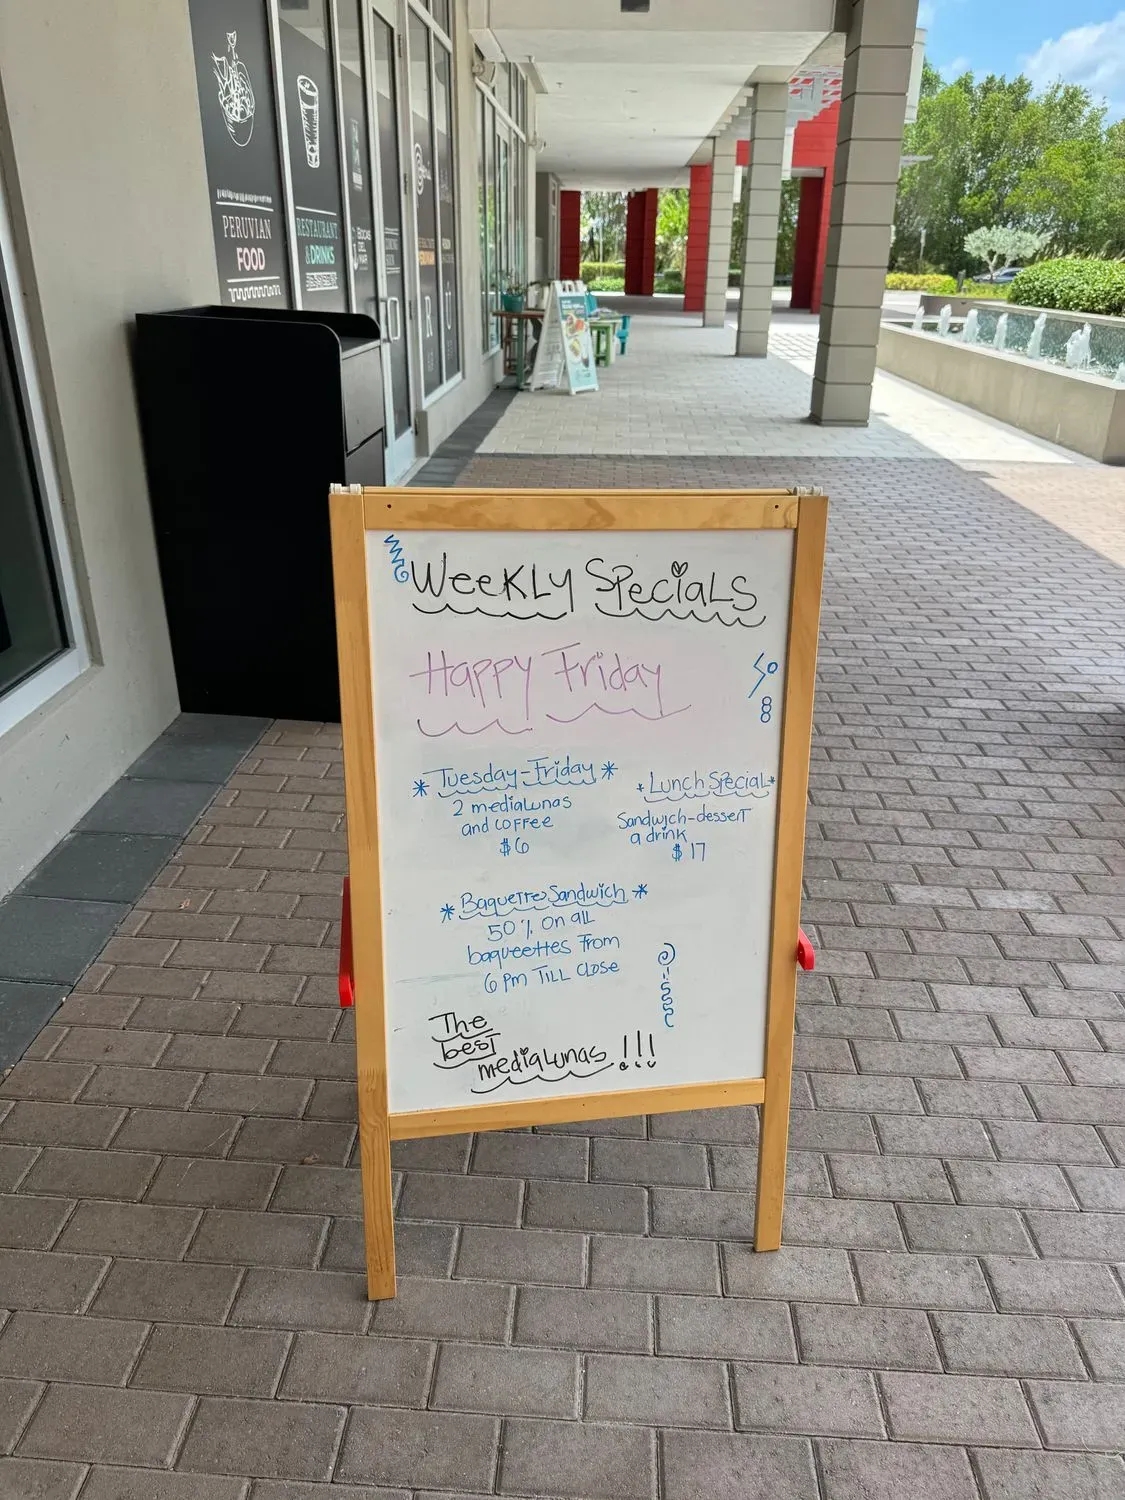 PERUVIAN
FOOD
RESTAURANT
& DRINKS
BOCAS
DEL
MAR
O R U
Weekly Specials
Happy Friday
* Tuesday-Friday *
2 medialunas
and coffee
$6
* Lunch Special *
Sandwich-dessert
a drink
$17
* Baguettes Sandwich *
50% on all
baqueettes From
6 pm TILL close
The
best
medialunas !!!